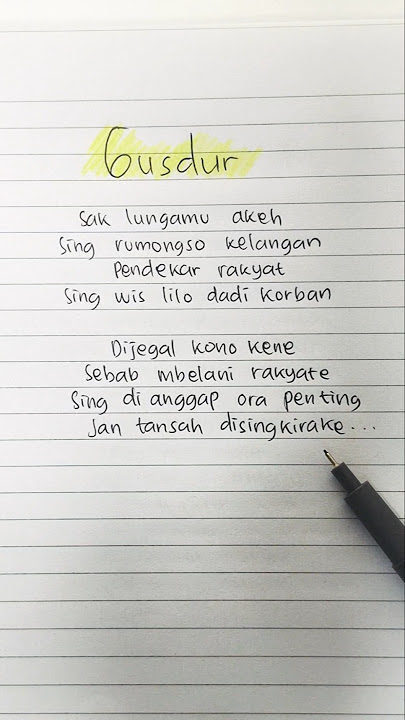 Gusdur
Sak lungamu akeh
Sing rumongso kelangan
Pendekar rakyat
Sing wis lilo dadi korban
Dijegal kono kene
Sebab mbelani rakyate
Sing di anggap ora penting
Jan tansah disingkirake...